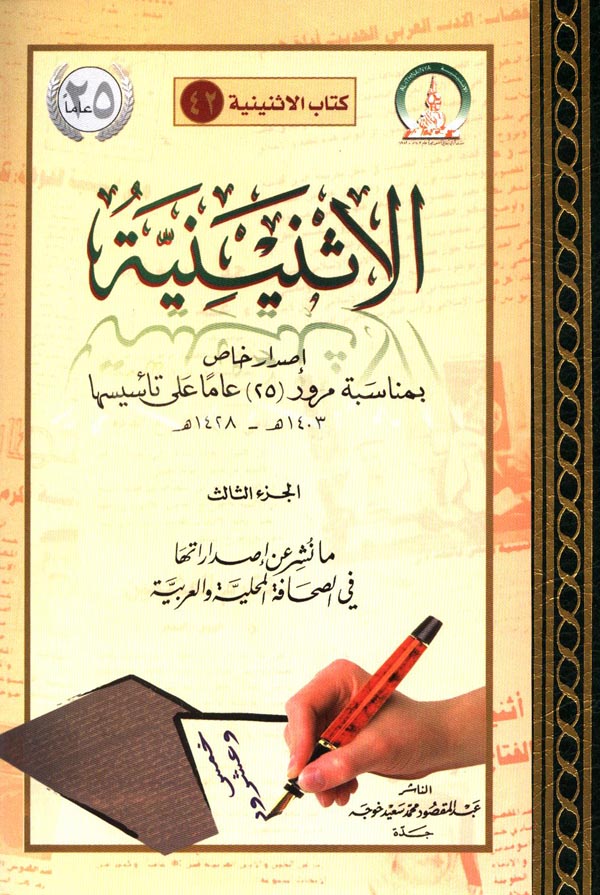 كتاب الاثنينية ٤٢
٢٥
عاماً
ALITHNAINYA
الاثنَينِيَّةُ
إصدار خاص
بمناسَبة مرور (٢٥) عامًا عَلى تأسيسها
١٤٠٣هـ - ١٤٢٨هـ
الجزء الثالث
ما نُشِر عن إصداراتها
في الصحافة المحليَّة والعربيَّة
خمس
وعشرون
الناشر
عَبد المقصُود محمّد سَعيد خوجَه
جَدّة